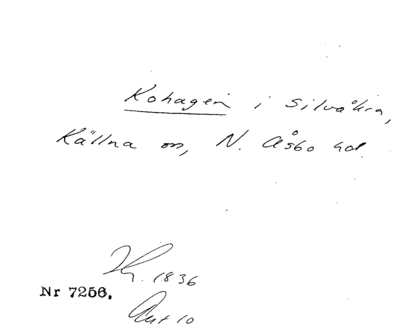 Kohagen i Silvåkra,
Källna sn, N. Åsbo hd.
1836
Nr 7256.
10